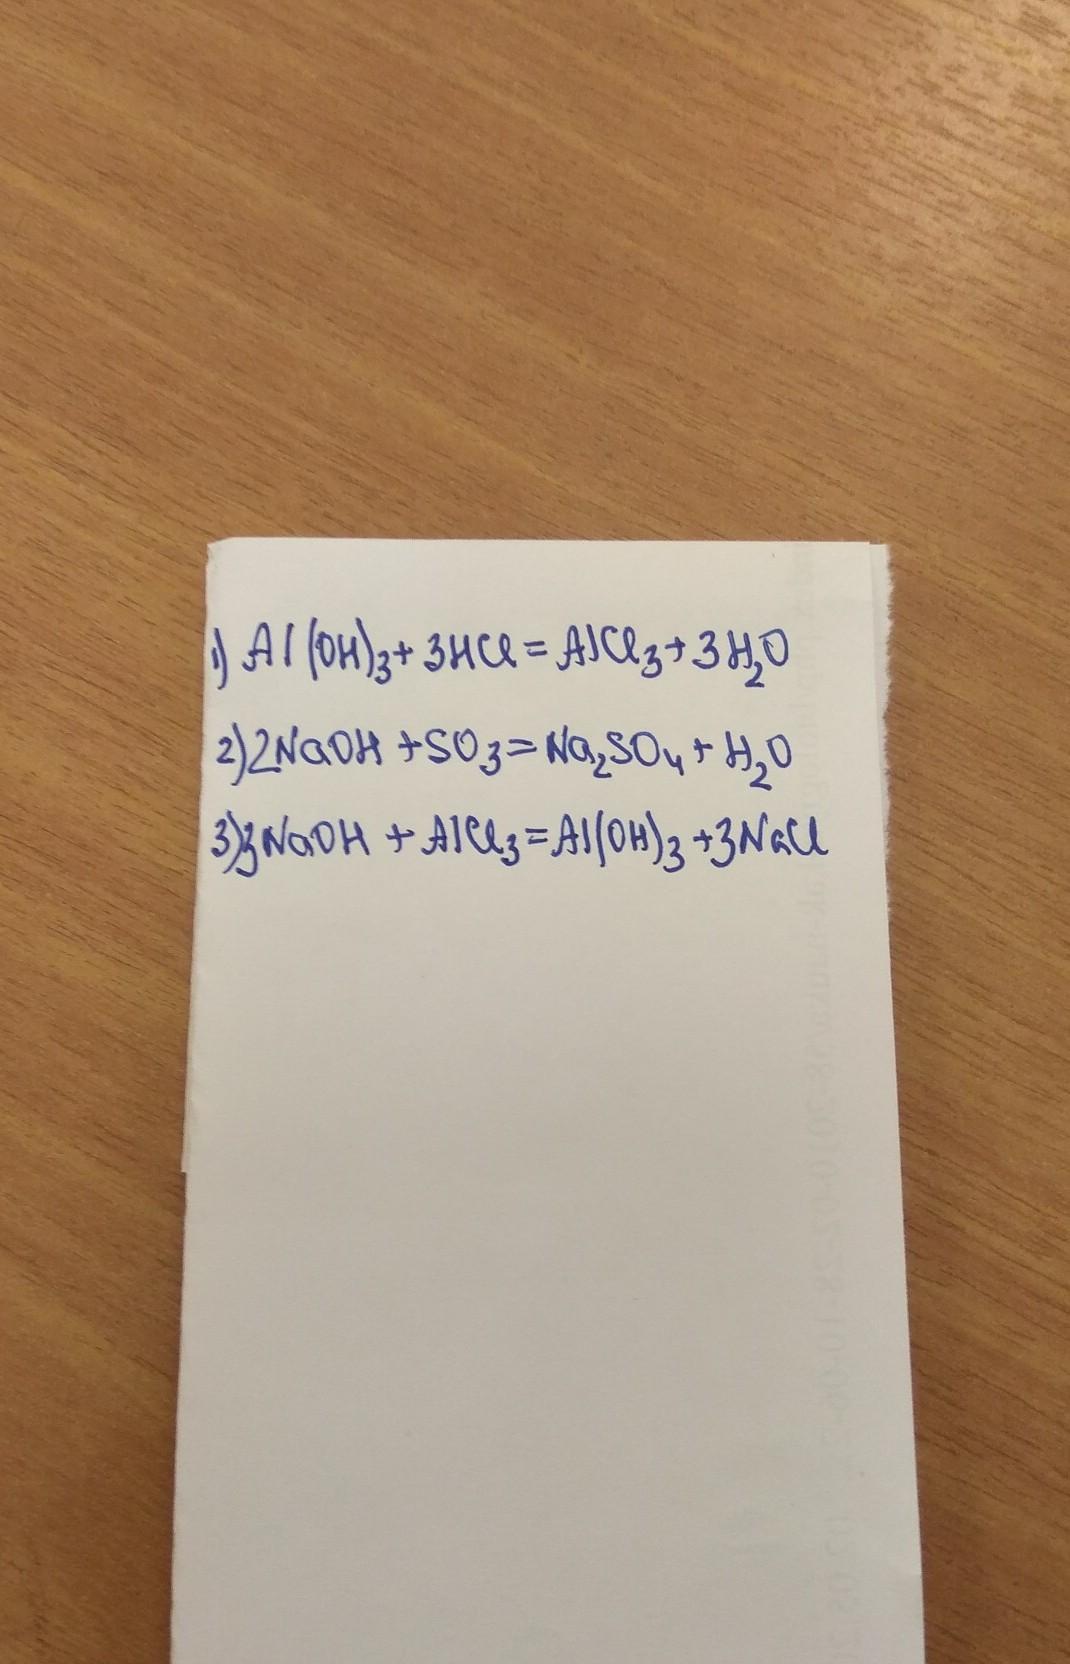 1) Al(OH)₃ + 3HCl = AlCl₃ + 3H₂O
2) 2NaOH + SO₃ = Na₂SO₄ + H₂O
3) 3NaOH + AlCl₃ = Al(OH)₃ + 3NaCl